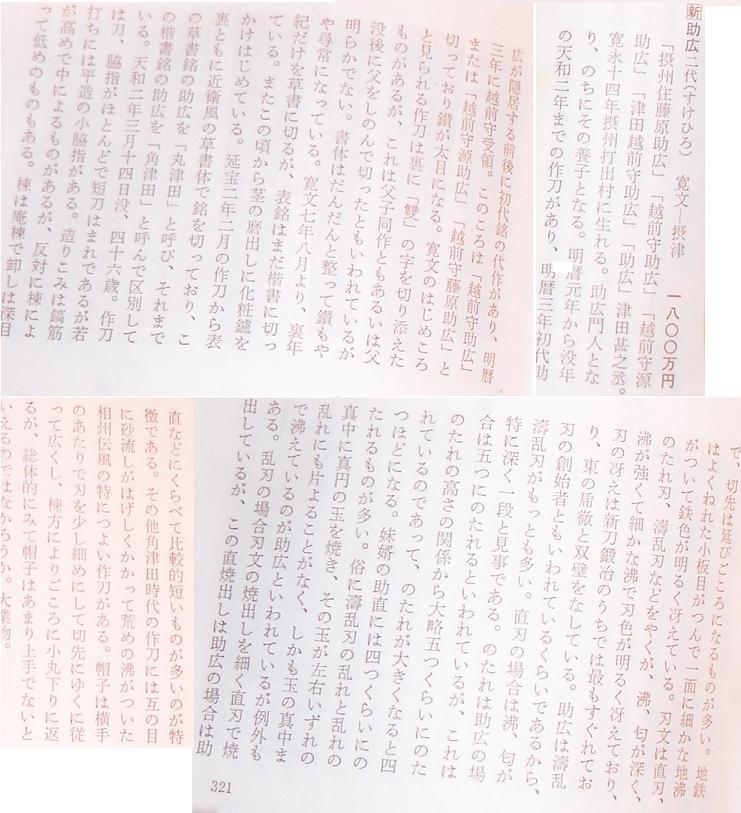 新助広二代(すけひろ) 寛文―摂津 一八〇〇万円
「摂州住藤原助広」「越前守助広」「越前守源
助広」「津田越前守助広」「助広」津田甚之丞。
寛永十四年摂州打出村に生れる。助広門人とな
り、のちにその養子となる。明暦元年から没年
の天和二年までの作刀があり、明暦三年初代助
広が隠居する前後に初代銘の代作があり、明暦
三年に越前守受領。このころは「越前守助広」
または「越前守源助広」「越前守藤原助広」と
切っており鏨が太目になる。寛文のはじめころ
と見られる作刀は裏に「雙」の字を切り添えた
ものがあるが、これは父子同作ともあるいは父
没後に父をしのんで切ったともいわれているが
明らかでない。書体はだんだんと整って鏨もや
や尋常になっている。寛文七年八月より、裏年
紀だけを草書に切るが、表銘はまだ楷書に切っ
ている。またこの頃から茎の磨出しに化粧鑢を
かけはじめている。延宝二年二月の作刀から表
裏ともに近衛風の草書体で銘を切っており、こ
の草書銘の助広を「丸津田」と呼び、それまで
の楷書銘の助広を「角津田」と呼んで区別して
いる。天和二年三月十四日没、四十六歳。作刀
は刀、脇指がほとんどで短刀はまれであるが若
打ちには平造の小脇指がある。造りこみは鎬筋
が高めで中によるものがあるが、反対に棟によ
って低めのものもある。棟は庵棟で卸しは深目
で、切先は延びごころになるものが多い。地鉄
はよくねれた小板目がつんで一面に細かな地沸
がついて鉄色が明るく冴えている。刃文は直刃、
のたれ刃、濤乱刃などをやくが、沸、匂が深く、
沸が強くて細かな沸で刃色が明るく冴えており、
刃の冴えは新刀鍛冶のうちでは最もすぐれてお
り、東の乕徹と双璧をなしている。助広は濤乱
刃の創始者ともいわれているくらいであるから、
濤乱刃がもっとも多い。直刃の場合は沸、匂が
特に深く一段と見事である。のたれは助広の場
合は五つにのたれるといわれているが、これは
のたれの高さの関係から大略五つくらいにのた
れているのであって、のたれが大きくなると四
つほどになる。妹婿の助直には四つくらいにの
たれるものが多い。俗に濤乱刃の乱れと乱れの
真中に真円の玉を焼き、その玉が左右いずれの
乱れにも片よることがなく、しかも玉の真中ま
で沸えているのが助広といわれているが例外も
ある。乱刃の場合刃文の焼出しを細く直刃で焼
出しているが、この直焼出しは助広の場合は助
直などにくらべて比較的短いものが多いのが特
徴である。その他角津田時代の作刀には互の目
に砂流しがはげしくかかって荒めの沸がついた
相州伝風の特につよい作刀がある。帽子は横手
のあたりで刃を少し細めにして切先にゆくに従
って広くし、棟方によりごころに小丸下りに返
るが、総体的にみて帽子はあまり上手でないと
いえるのではなかろうか。大業物。
321